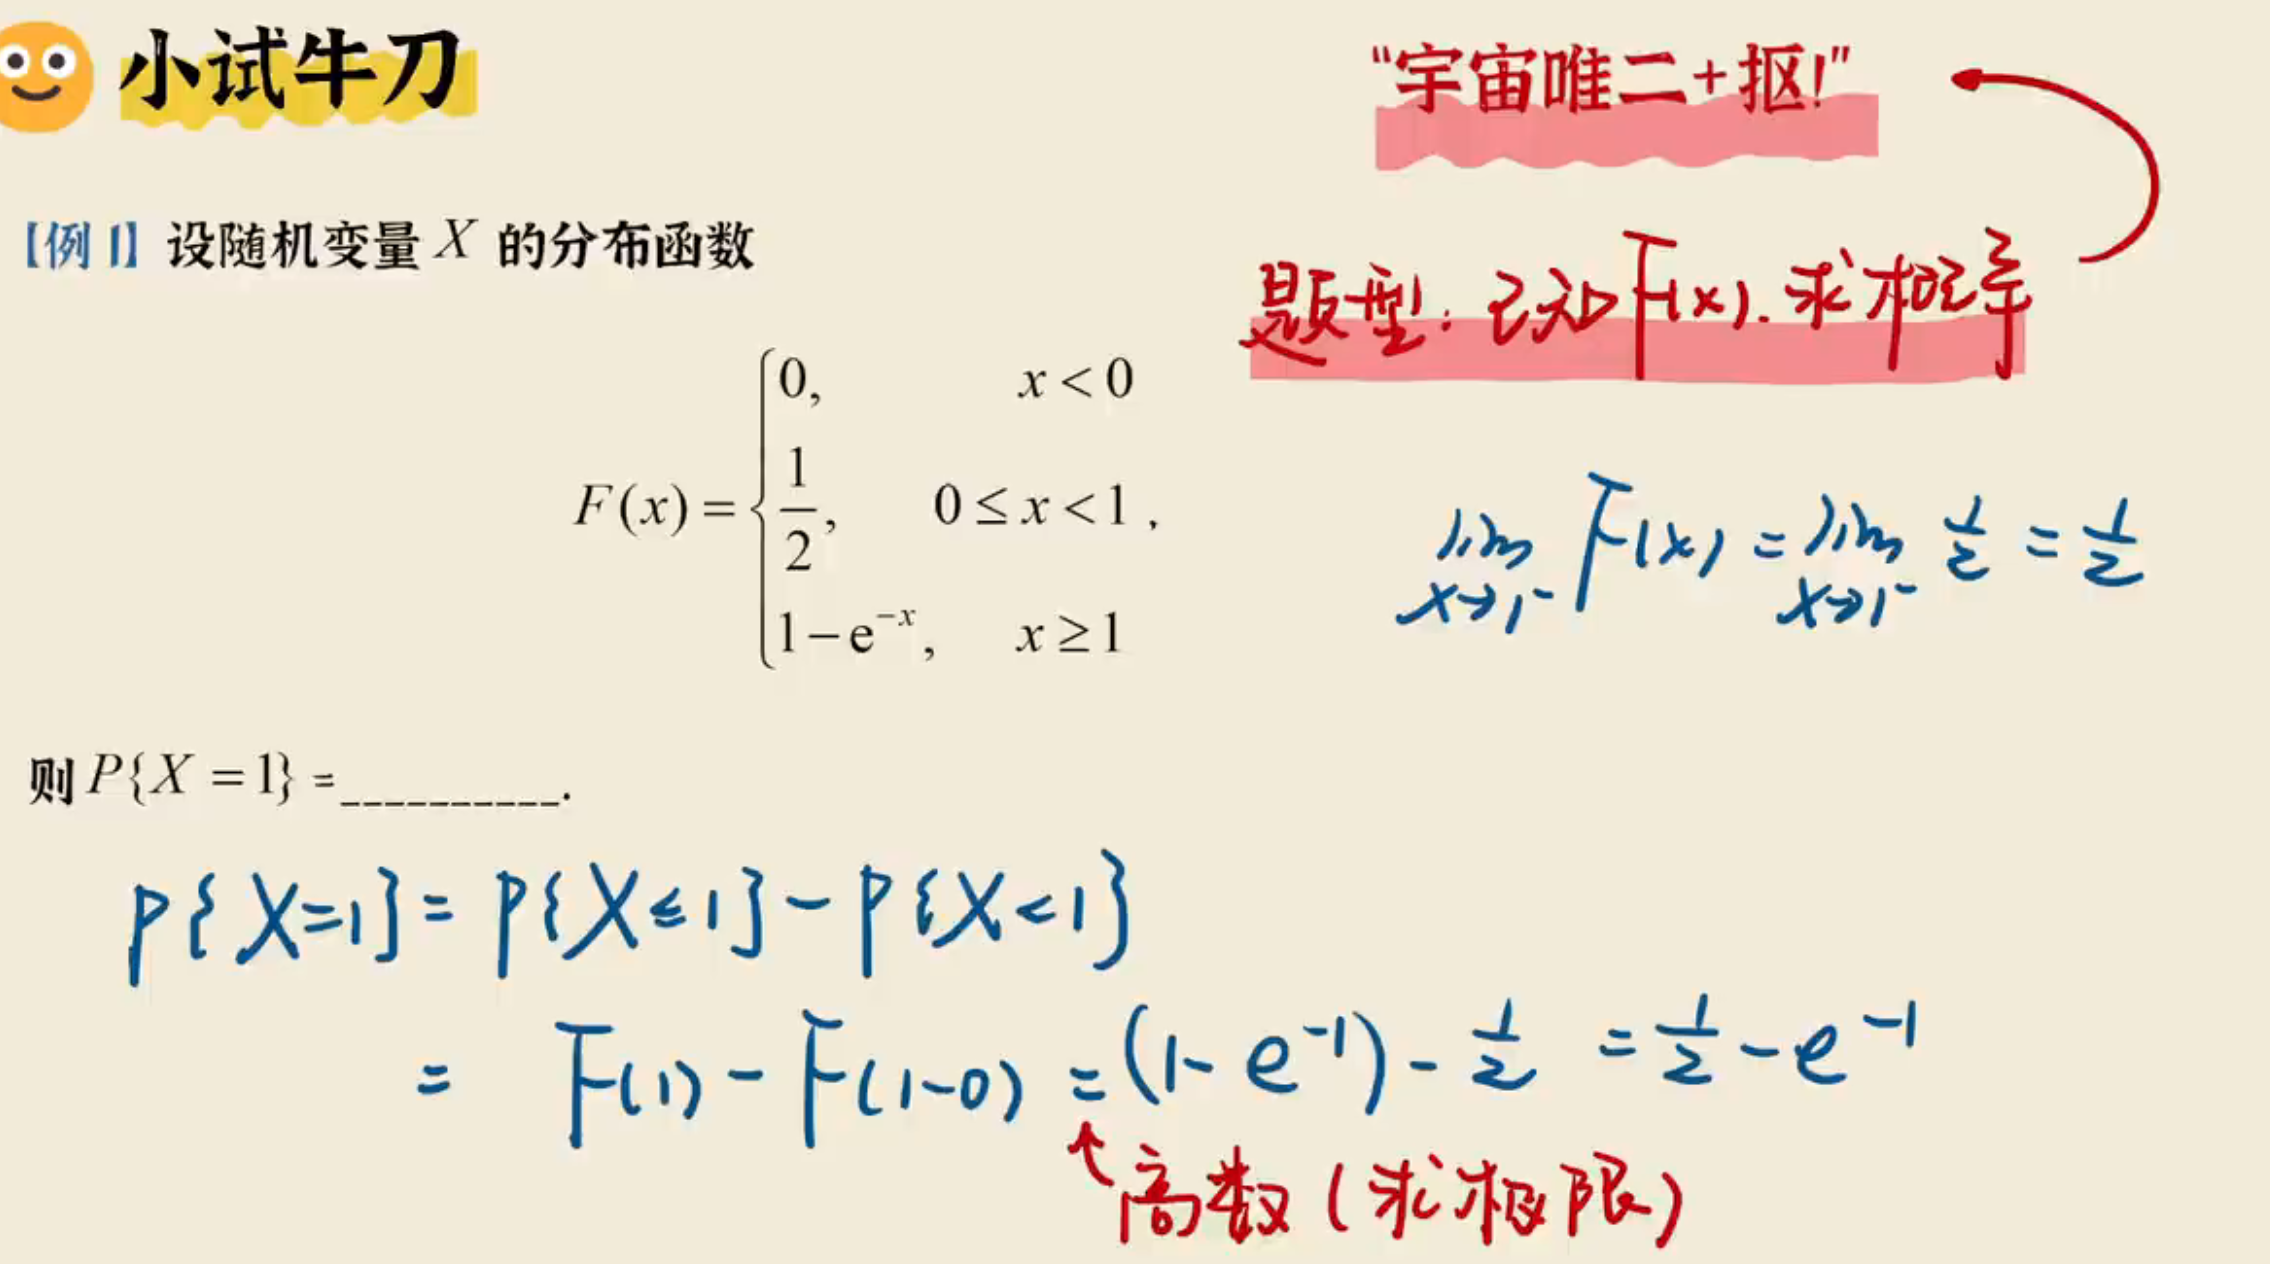 小试牛刀
“宇宙唯二+抠!”
【例1】设随机变量 X 的分布函数
题型:已知F(x).求概率
F(x) = { 0, x < 0
1/2, 0 ≤ x < 1 ,
1 − e^{−x}, x ≥ 1
lim_{x→1⁻} F(x) = lim_{x→1⁻} 1/2 = 1/2
则 P{X = 1} = __________.
P{X=1} = P{X≤1} − P{X<1}
= F(1) − F(1−0) = (1 − e^{−1}) − 1/2 = 1/2 − e^{−1}
↑高数(求极限)